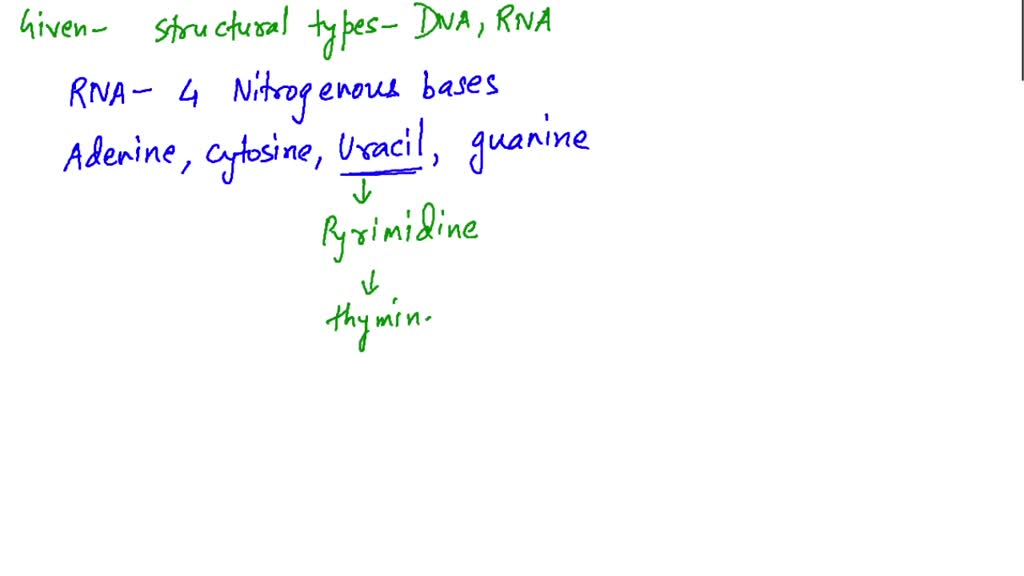 Given- structural types- DNA, RNA
RNA- 4 Nitrogenous bases
Adenine, Cytosine, Uracil, guanine
↓
Pyrimidine
↓
thymin.